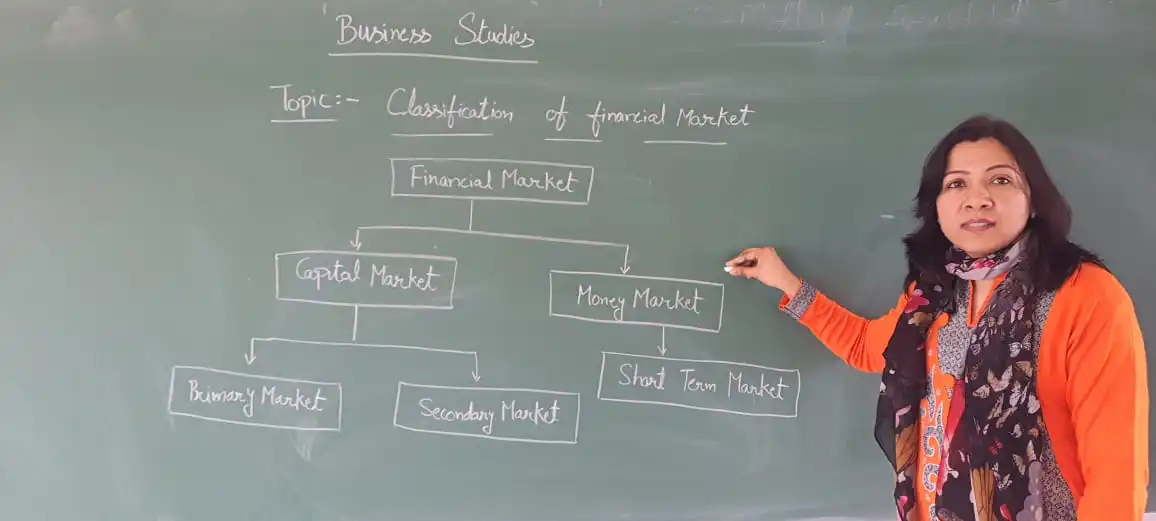 Business Studies
Topic:- Classification of financial Market
Financial Market
Capital Market
Money Market
Primary Market
Secondary Market
Short Term Market